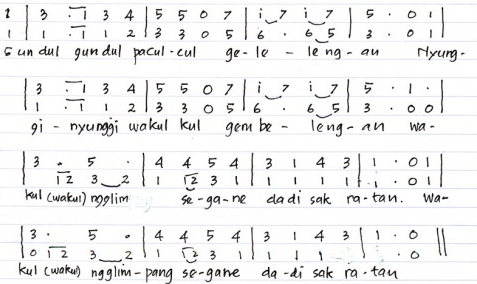 1 | 3 . 1 3 4 | 5 5 0 7 | i 7 i 7 | 5 . 0 1 |
1 | 1 . 1 1 2 | 3 3 0 5 | 6 . 6 5 | 3 . 0 1 |
Gundul gundul pacul-cul ge-le-leng-an Nyung-
| 3 . 1 3 4 | 5 5 0 7 | i 7 i 7 | 5 . 1 . |
| 1 . 1 1 2 | 3 3 0 5 | 6 . 6 5 | 3 . 0 0 |
gi-nyunggi wakul kul gembe-leng-an wa-
| 3 . 5 . | 4 4 5 4 | 3 1 4 3 | 1 . 0 1 |
1 2 3 2 | 1 1 2 3 1 | 1 1 1 1 | 1 . 0 1 |
kul (wakul) ngglim se-ga-ne dadi sak ra-tan. wa-
| 3 . 5 . | 4 4 5 4 | 3 1 4 3 | 1 . 0 ||
| 0 1 2 3 2 | 1 1 2 3 1 | 1 1 1 . 0 ||
kul (wakul) ngglim-pang se-gane da-di sak ra-tan